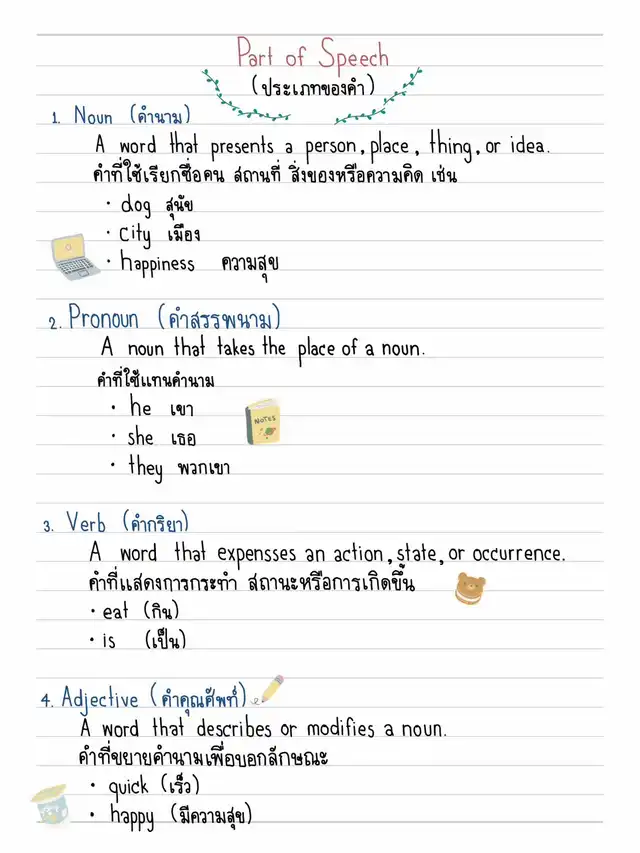 Part of Speech
(ประเภทของคำ)
1. Noun (คำนาม)
A word that presents a person, place, thing, or idea.
คำที่ใช้เรียกชื่อคน สถานที่ สิ่งของหรือความคิด เช่น
· dog สุนัข
· city เมือง
· happiness ความสุข
2. Pronoun (คำสรรพนาม)
A noun that takes the place of a noun.
คำที่ใช้แทนคำนาม
· he เขา
NOTES
· she เธอ
· they พวกเขา
3. Verb (คำกริยา)
A word that expensses an action, state, or occurrence.
คำที่แสดงการกระทำ สถานะหรือการเกิดขึ้น
· eat (กิน)
· is (เป็น)
4. Adjective (คำคุณศัพท์)
A word that describes or modifies a noun.
คำที่ขยายคำนามเพื่อบอกลักษณะ
· quick (เร็ว)
· happy (มีความสุข)